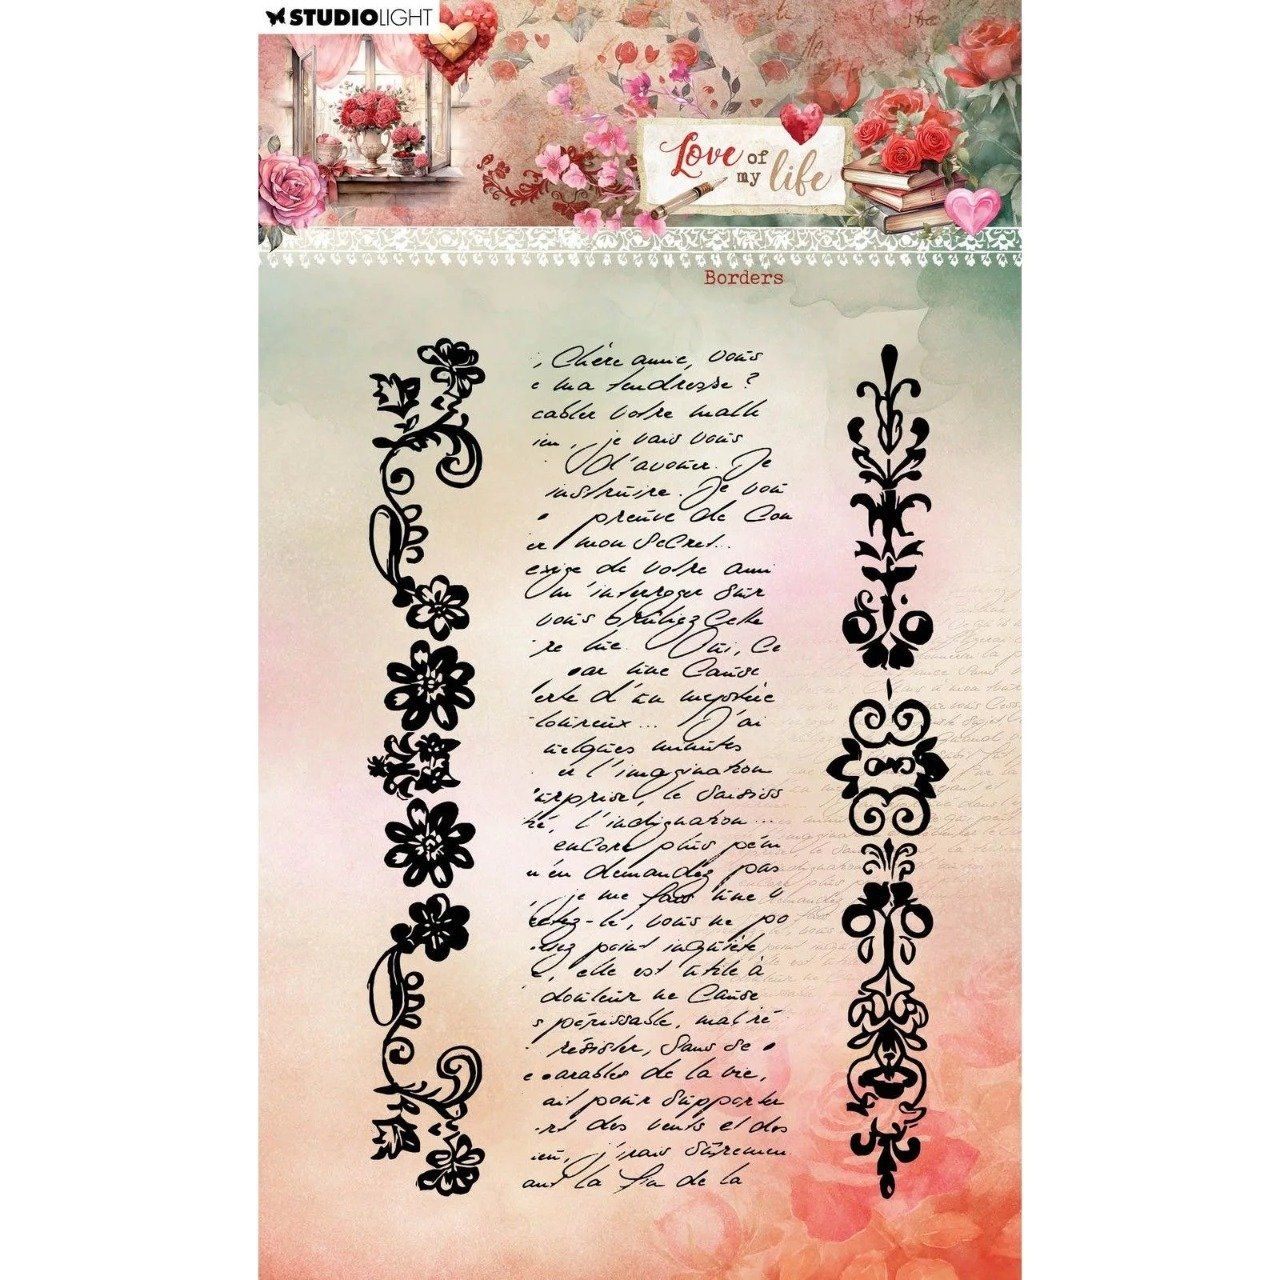 STUDIOLIGHT
Love of
my life
Borders
Chère amie, vous
e ma tendresse ?
cabler votre malh
je vais vous
d'avouer. Je
instruire. Je vou
preuve de Con
er mon Secret...
exige de votre ami
m'interroger sur
vous brûliez Cette
re vie. Oui, Ce
par une Cause
erte d'un mystère
loureux... J'ai
uelques minutes
er l'imagination
urprise, le Saisiss
té, l'indignation...
encore plus pén
n'en demandez pas
je me fais une
etez-le, vous ne po
vez point inquiète
e, elle est utile à
douleur ne Cause
s périssable, mal ré
résister, Sans Se
arables de la vie,
ait pour Supporter
rt des vents et des
j'irais Sûremen
ant la fin de la